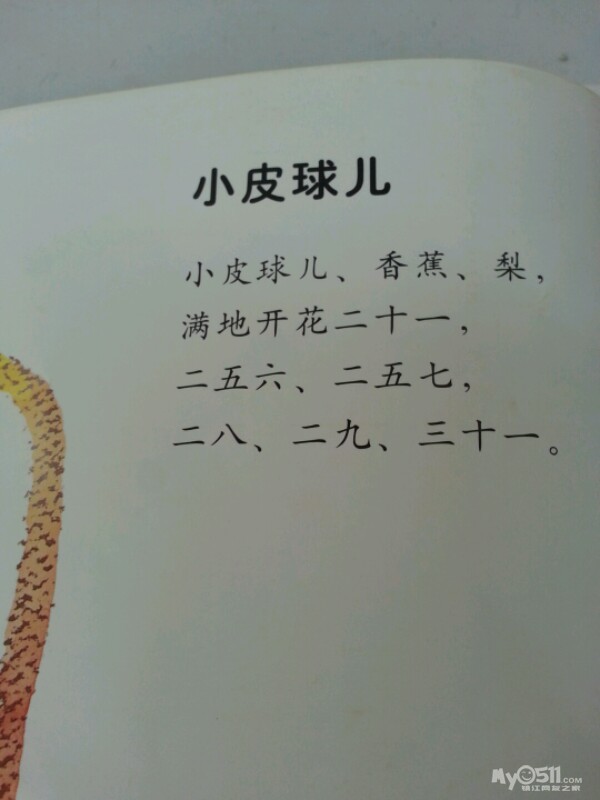 小皮球儿
小皮球儿、香蕉、梨，
满地开花二十一，
二五六、二五七，
二八、二九、三十一。
My0511.com
镇江网友之家